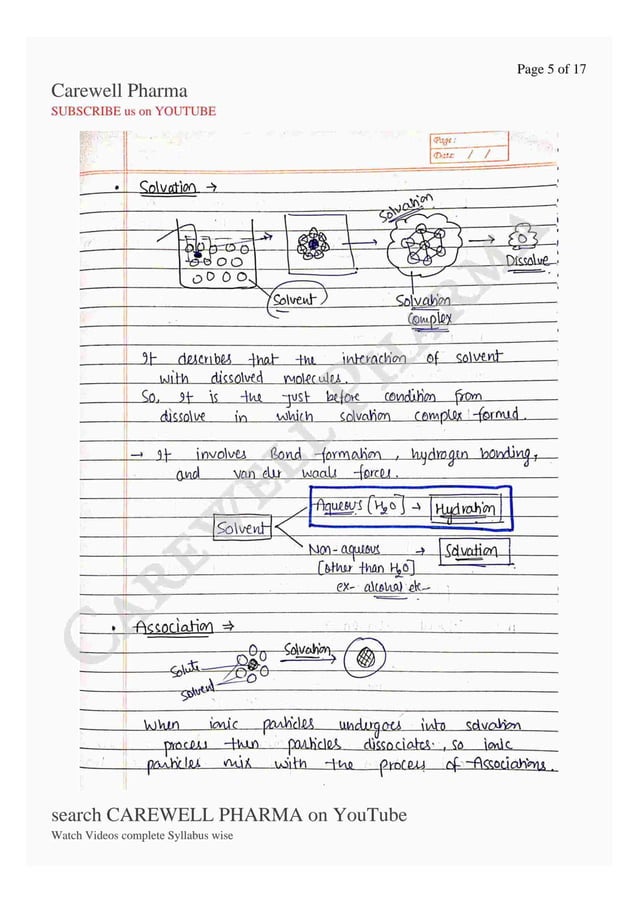 Page 5 of 17
Carewell Pharma
SUBSCRIBE us on YOUTUBE
Page:
Date: / /
• Solvation →
Solvation
Dissolve
Solvent
Solvation
Complex
It describes that the interaction of solvent
with dissolved molecules.
So, It is the just before condition from
dissolve in which solvation complex formed.
→ It involves Bond formation, hydrogen bonding,
and van der waals forces.
Aqueous [H2O] → Hydration
Solvent
Non-aqueous → Solvation
[other than H2O]
ex- alcohol etc-
• Association ⇒
Solvation
Solute
Solvent
When ionic particles undergoes into solvation
process then particles dissociates, so ionic
particles mix with the process of Associations.
CAREWELL PHARMA
search CAREWELL PHARMA on YouTube
Watch Videos complete Syllabus wise